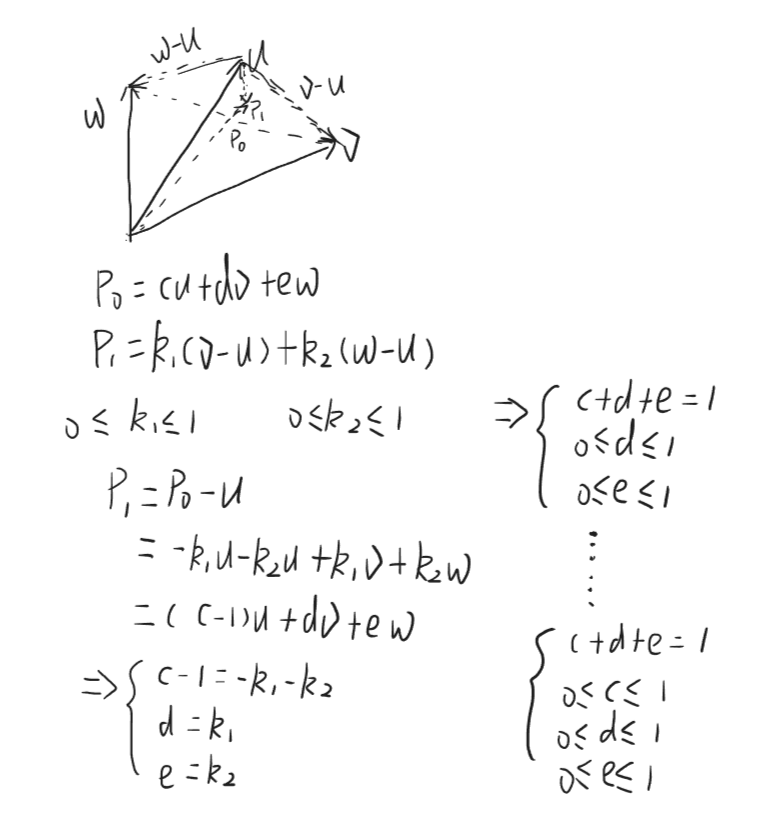 w-u
u
v-u
w
P₁
P₀
v
P₀ = cu+dv+ew
P₁ = k₁(v-u)+k₂(w-u)
0 ≤ k₁ ≤ 1 0≤k₂≤1
P₁ = P₀-u
= -k₁u-k₂u+k₁v+k₂w
= (c-1)u+dv+ew
⇒ { c-1 = -k₁-k₂
d = k₁
e = k₂
⇒ { c+d+e = 1
0≤d≤1
0≤e≤1
⋮
⋮
{ c+d+e = 1
0≤c≤1
0≤d≤1
0≤e≤1